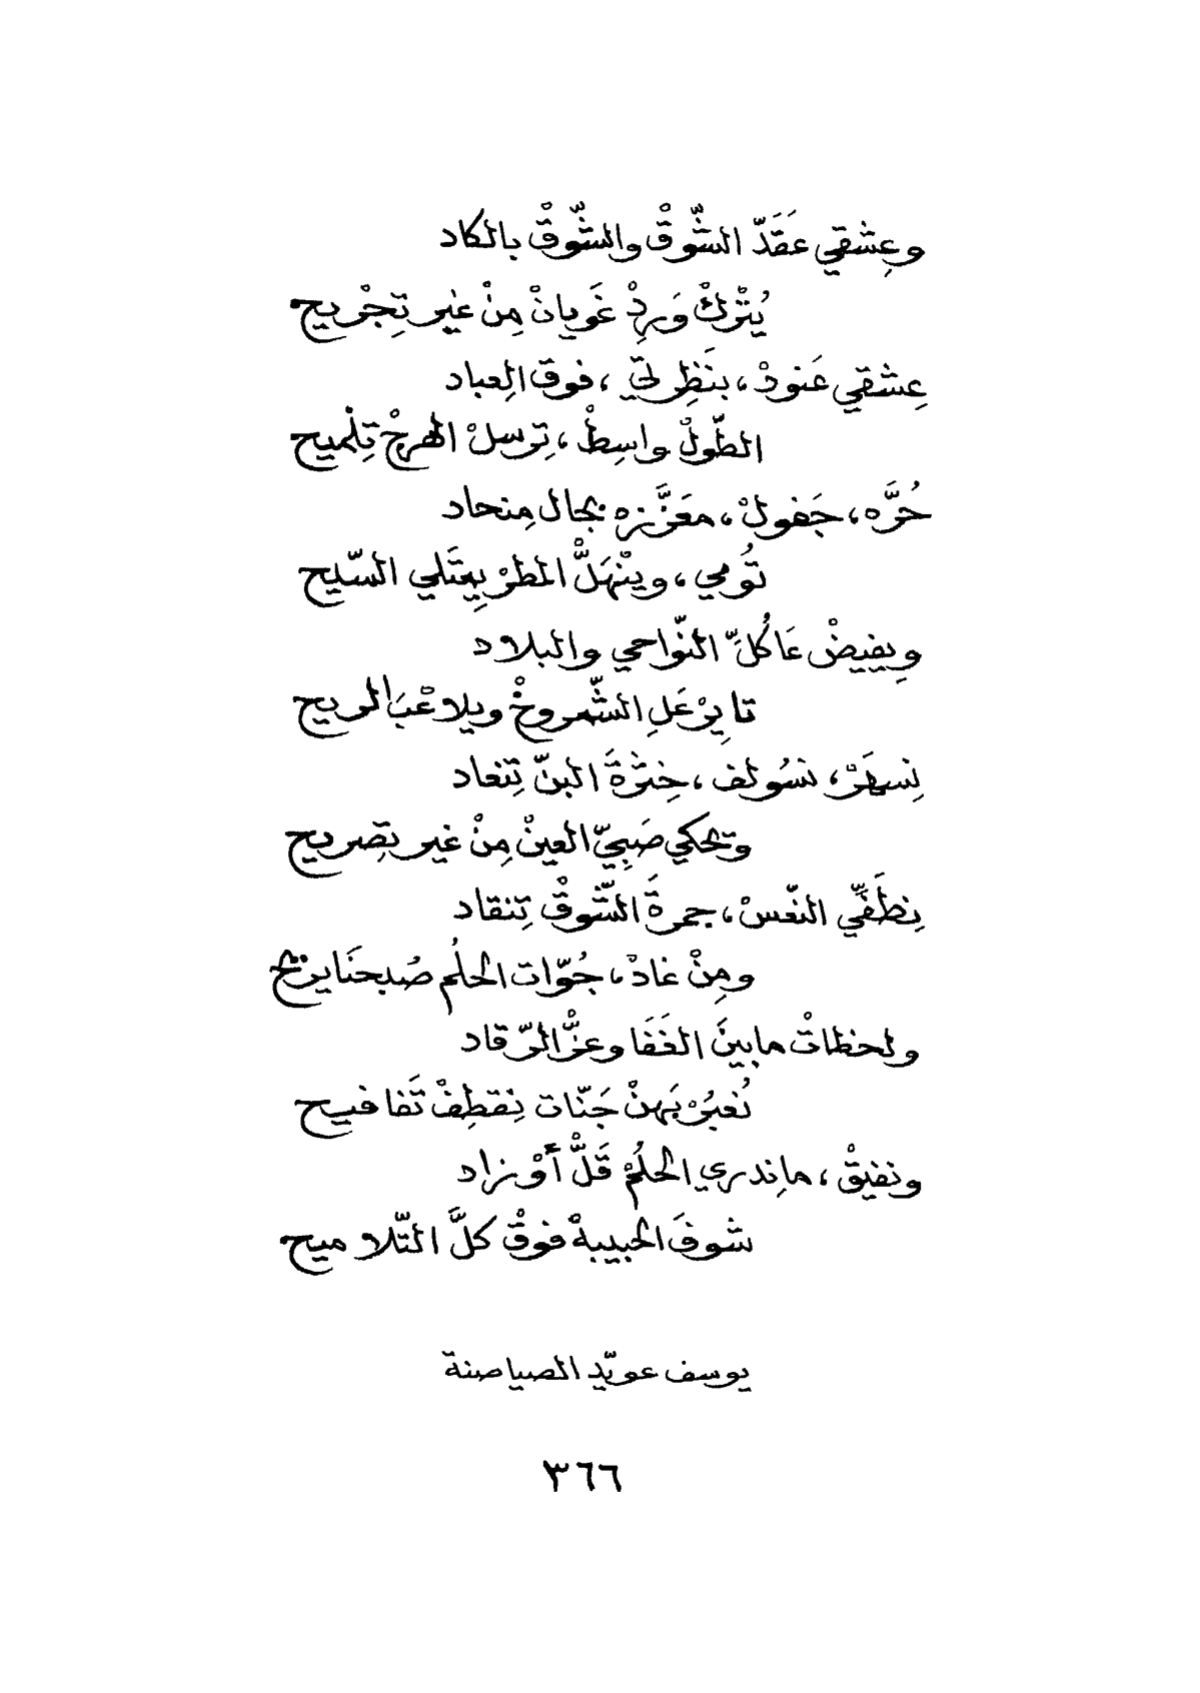 وعِشقي عَقَدّ الشّوقْ والشّوقْ بالكاد
يُتْركْ وَرِدْ غَويانْ مِنْ غير تِجْريح
عِشقي عَنودْ، بنَظِر لي، فوق العِباد
الطّولْ واسِطْ، تِرسلْ الهرجْ تِلْميح
حُرَّه، جَفولْ، معَزَّزه بجال مِنحاد
تُومي، وينْهَلّْ المطرْ بِعتَلي السّيح
وِيفيضْ عَاكُلِّ النّواحي والبلاد
تايِرْ عَلِ الشّمروخْ ويلاعْبَ الريح
نِسهَرْ، نسُولف، خِثْرةَ البنّ تِنعاد
وتحكي صَبِيّ العينْ مِنْ غير تِصريح
نِطَفِّي النّفسْ، جمرةَ الشّوقْ تِنقاد
ومِنْ غادْ، جُوّات الحلُم صُبحنَا يريح
ولحظاتْ مابينَ الغَفَا وعزّْ الرّقاد
نُعبُرْ بَهِنْ جَنّات نِقطِفْ تَفافيح
ونفيقْ، ماِندري الحلُمْ قَلّْ أوْ زاد
شوفَ الحبيبةْ فوقْ كلَّ التّلاميح
يوسف عويّد الصياصنة
٣٦٦